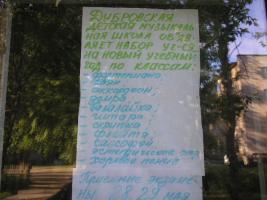 ДУБРОВСКАЯ
ДЕТСКАЯ МУЗЫКАЛЬ
НАЯ ШКОЛА ОБЪЯВ
ЛЯЕТ НАБОР УЧ-СЯ
НА НОВЫЙ УЧЕБНЫЙ
ГОД ПО КЛАССАМ:
- фортепиано,
- баян
- аккордеон;
- домра
- балалайка;
- гитара
- скрипка
- флейта
- саксофон
- хоровое пение.
Приёмные экзаме-
ны 28 29 мая